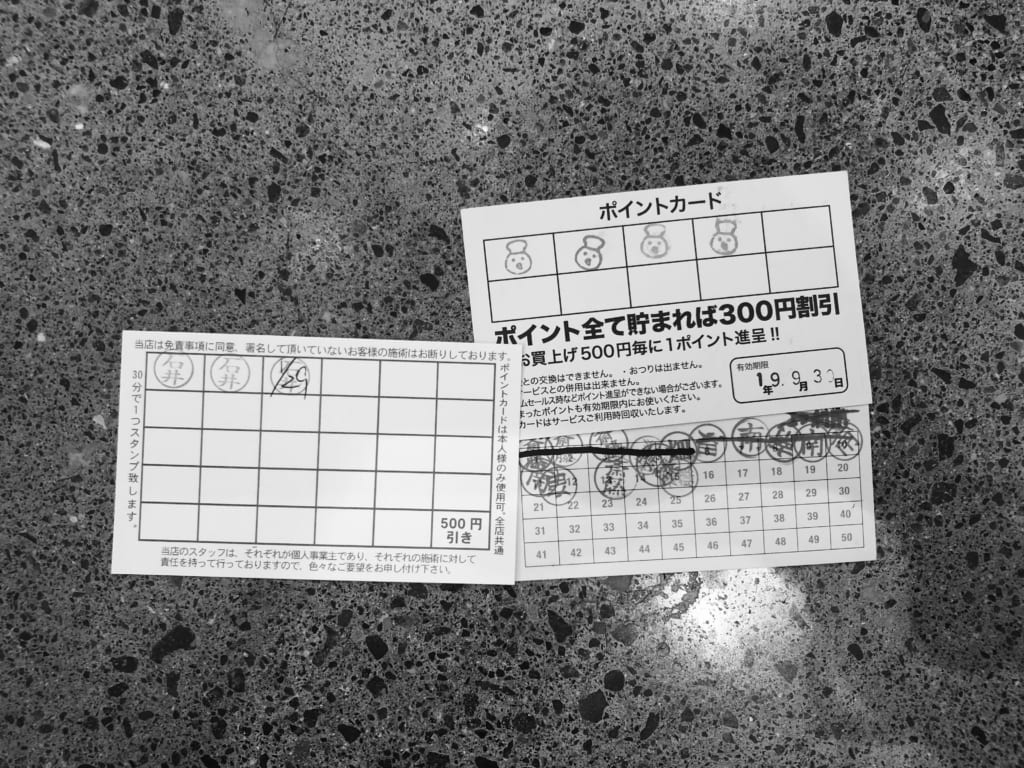 当店は免責事項に同意、署名して頂いていないお客様の施術はお断りしております。
30分で1つスタンプ致します。
石井
石井
ポイントカードは本人様のみ使用可。全店共通
500円
引き
当店のスタッフは、それぞれが個人事業主であり、それぞれの施術に対して
責任を持って行っておりますので、色々なご要望をお申し付け下さい。
ポイントカード
ポイント全て貯まれば300円割引
買上げ500円毎に1ポイント進呈!!
との交換はできません。・おつりは出ません。
ービスとの併用は出来ません。
ムセール時などポイント進呈ができない場合がございます。
まったポイントも有効期限内にお使いください。
カードはサービスご利用時回収いたします。
有効期限
19年9月30日
16 17 18 19 20
21 22 23 24 25 26 27 28 29 30
31 32 33 34 35 36 37 38 39 40
41 42 43 44 45 46 47 48 49 50